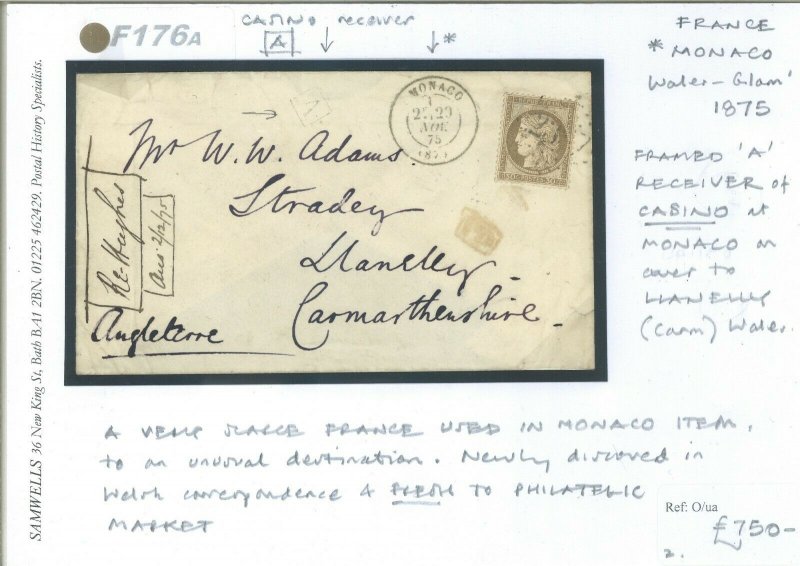 F176A
CASINO receiver
A
*
FRANCE
* MONACO
Wales - Glam'
1875
FRAMED 'A'
RECEIVER of
CASINO at
MONACO on
cover to
LLANELLY
(Carm) Wales.
SAMWELLS 36 New King St, Bath BA1 2BN. 01225 462429. Postal History Specialists.
MONACO
75
(87)
A
Mr W. W. Adams.
Stradey
Llanelly.
Carmarthenshire.
Angleterre
Re-Hughes
Ans: 2/12/75
A VERY SCARCE FRANCE USED IN MONACO ITEM,
to an unusual destination. Newly discovered in
Welsh correspondence & FRESH TO PHILATELIC
MARKET
Ref: O/ua
£750-
2.